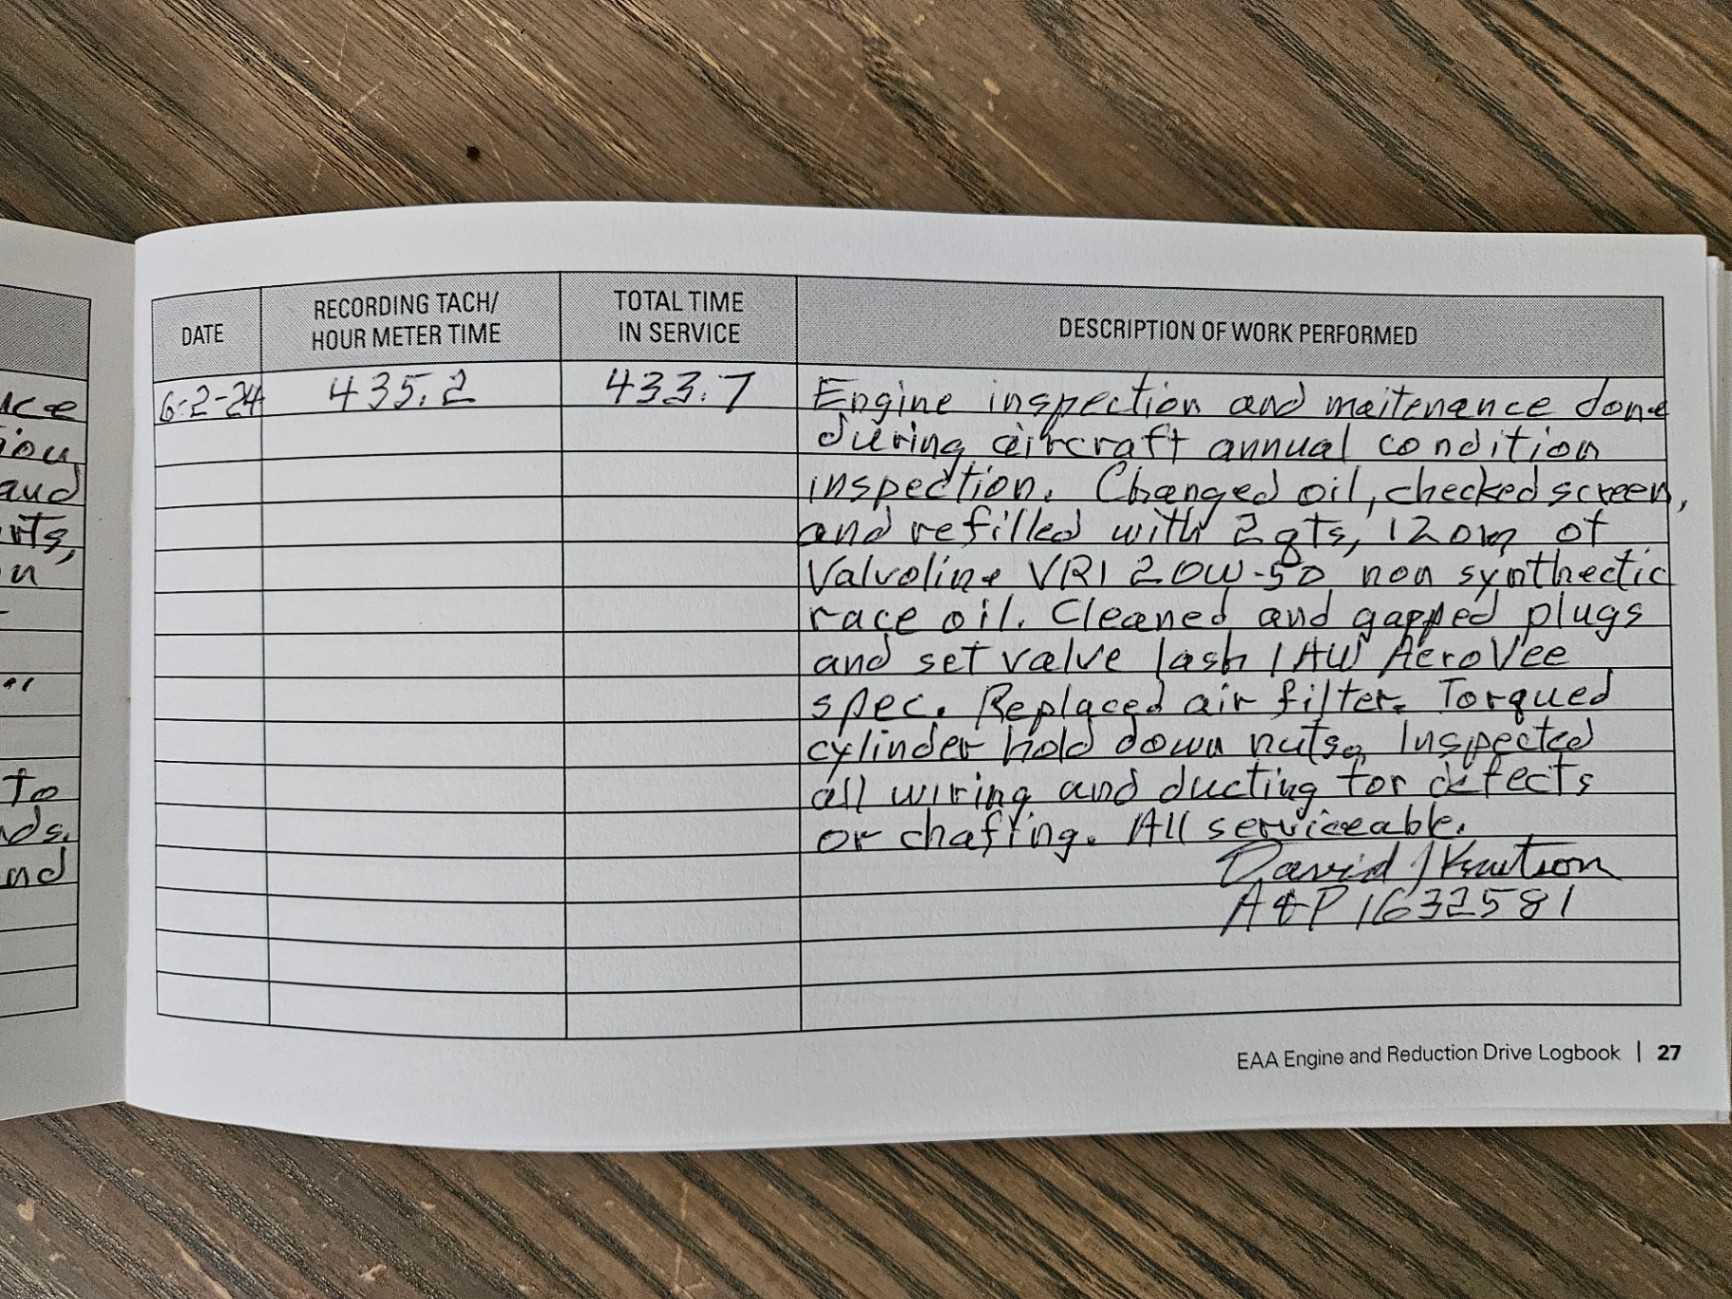 ce
iou
and
rts,
n
"
to
nds.
and
DATE
RECORDING TACH/
HOUR METER TIME
TOTAL TIME
IN SERVICE
DESCRIPTION OF WORK PERFORMED
6-2-24 435.2 433.7 Engine inspection and maitenance done
during aircraft annual condition
inspection. Changed oil, checked screen,
and refilled with 2 qts, 12 of
Valvoline VR1 20W-50 non synthectic
race oil. Cleaned and gapped plugs
and set valve lash IAW AeroVee
spec. Replaced air filter. Torqued
cylinder hold down nuts. Inspected
all wiring and ducting for defects
or chaffing. All serviceable.
David J Knutson
A&P 1632581
EAA Engine and Reduction Drive Logbook | 27